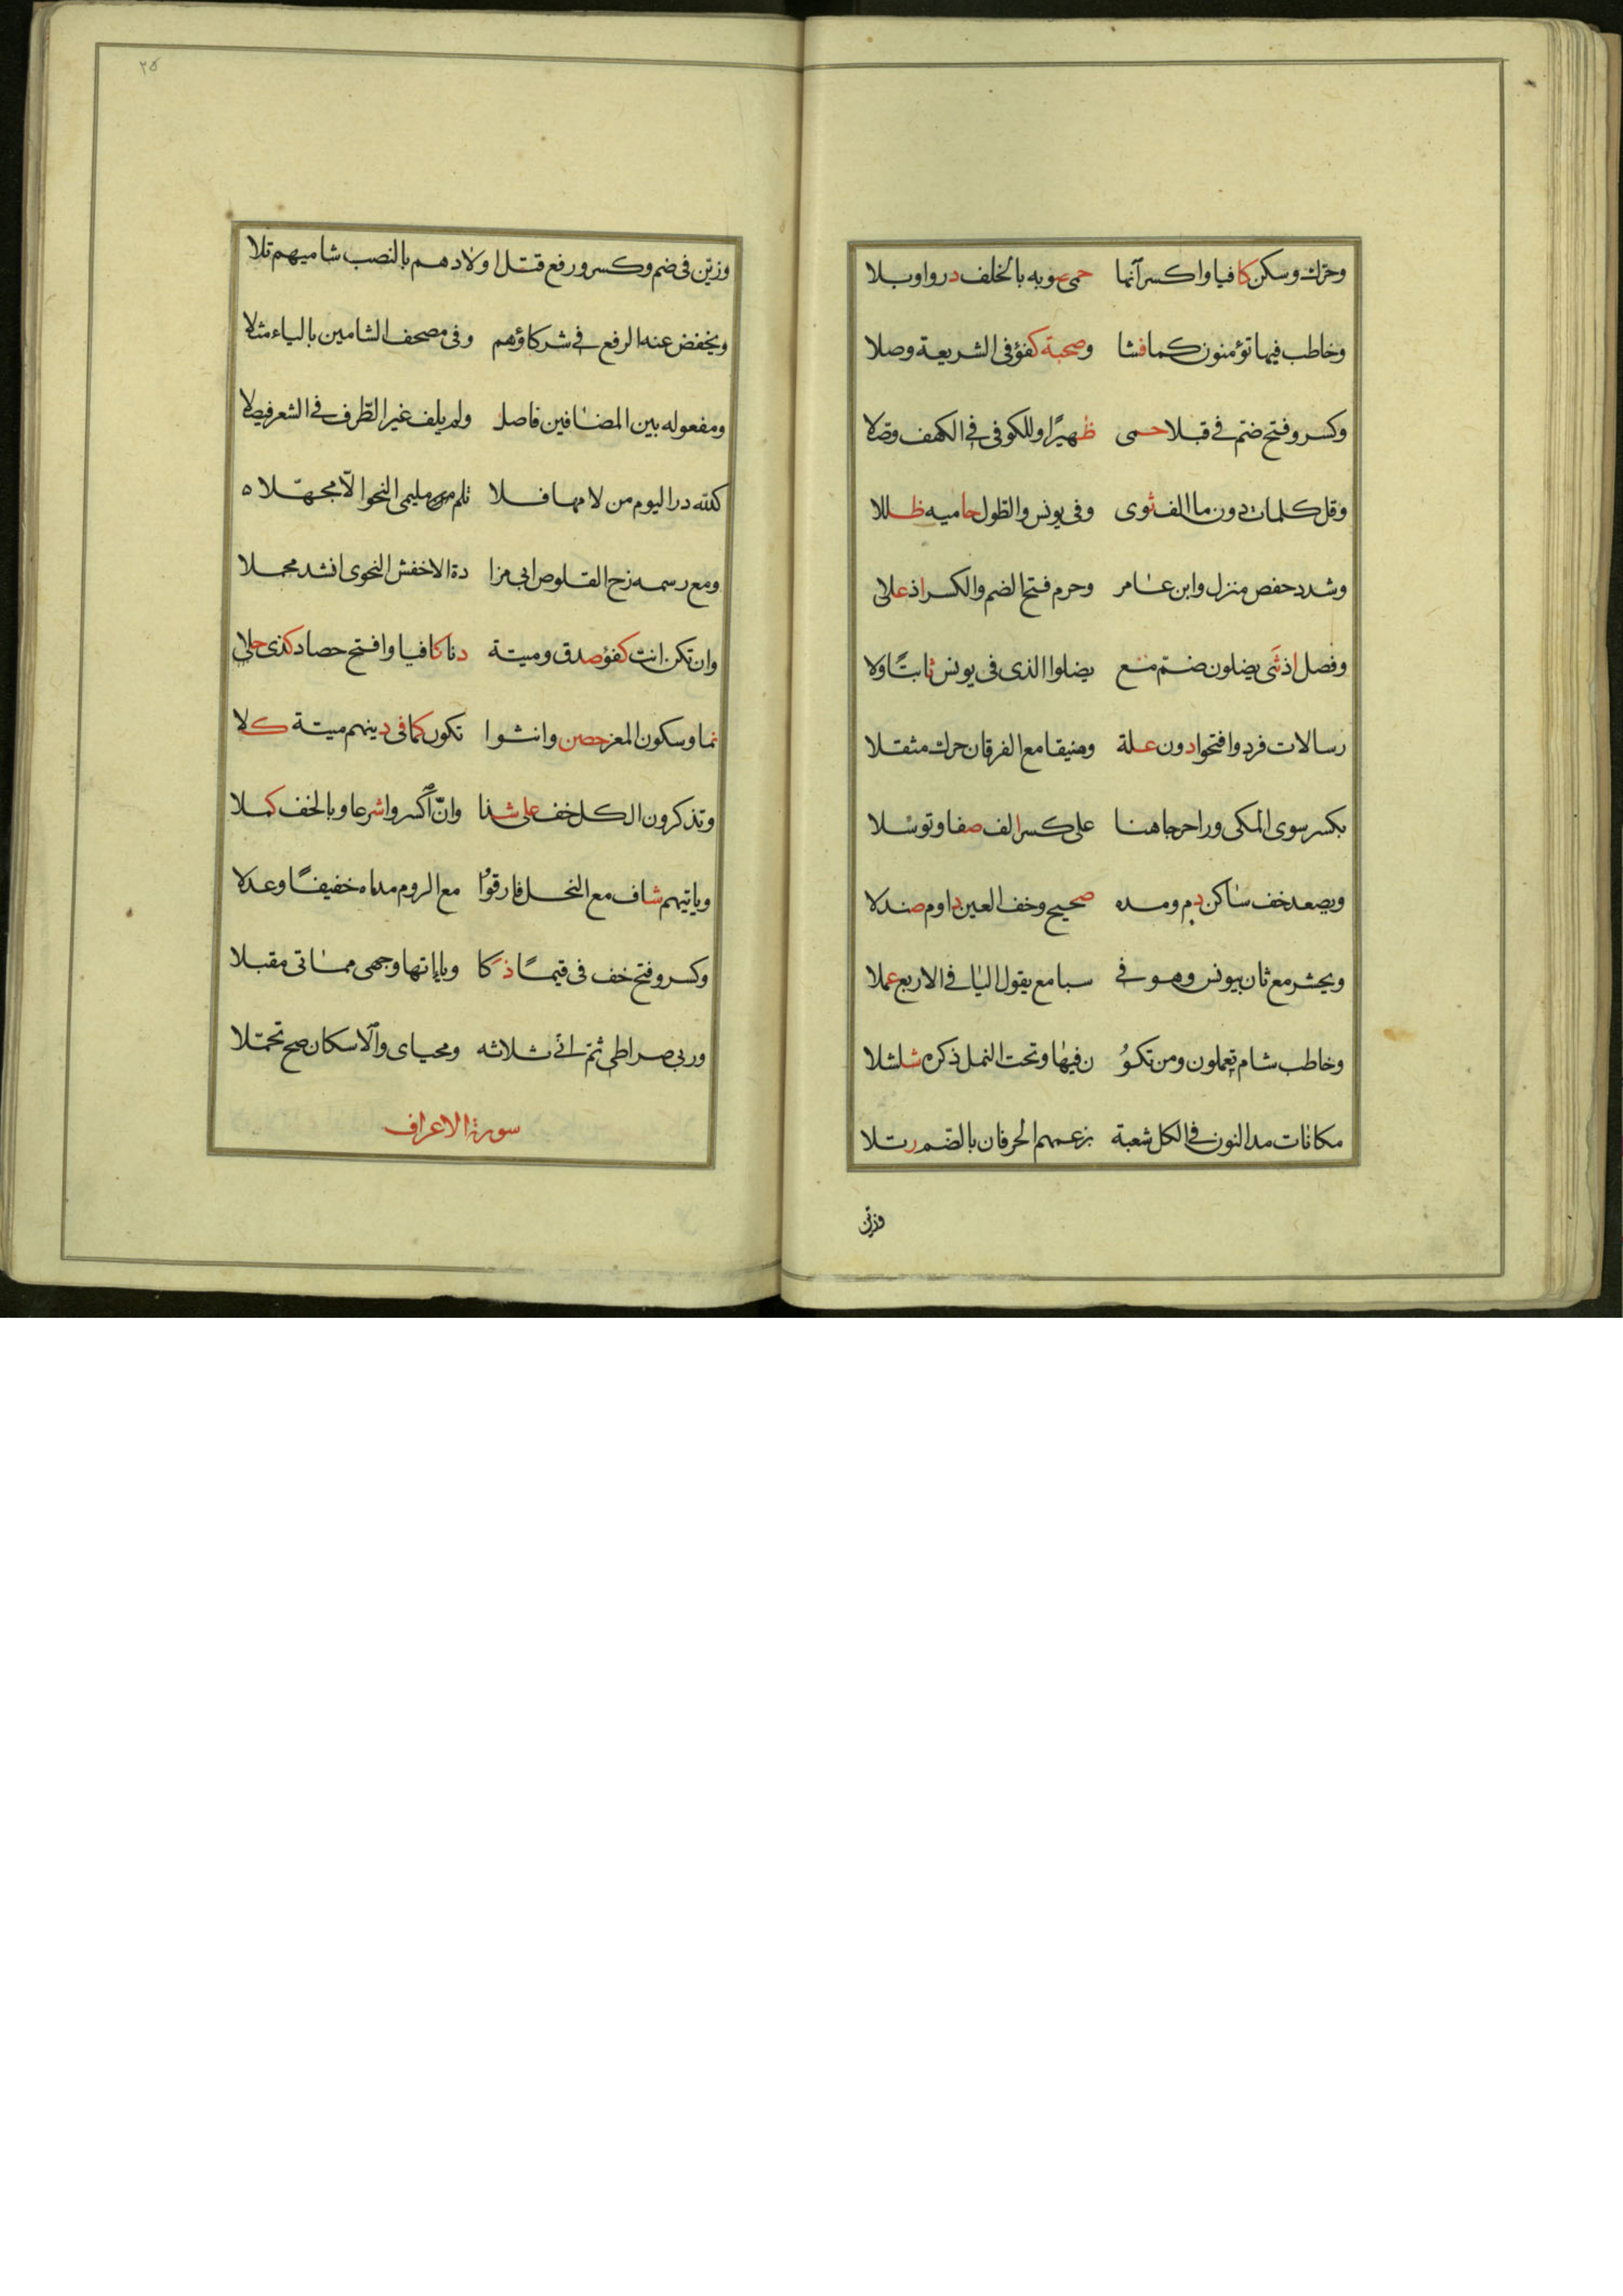 وحرّك وسكن كافيا واكسر آنها حمى صوبه بالخلف در واوبلا
وخاطب فيها تؤمنون كما فشا وصحبة كفؤ فى الشريعة وصلا
وكسر وفتح ضمّ فى قبلا حمى ظهيرًا وللكوفى فى الكهف وصّلا
وقل كلمات دون ما الف ثوى وفى يونس والطول حاميه ظللا
وشدد حفص منزل وابن عامر وحرم فتح الضم والكسر اذ علا
وفصل اذ ثنى يضلون ضمّ مع يضلوا الذى فى يونس ثابتًا ولا
رسالات فرد وافتحوا دون علة وضيقا مع الفرقان حرك مثقلا
بكسر سوى المكى وراحرجا هنا على كسر الف صفا وتوسلا
ويصعد خف ساكن دم ومده صحيح وخف العين داوم صندلا
ويحشر مع ثان بيونس وهو فى سبا مع يقول اليا فى الاربع عملا
وخاطب شام تعملون ومن تكوُ ن فيها وتحت النمل ذكره شلشلا
مكانات مد النون فى الكل شعبة بزعمهم الحرفان بالضّم رتلا
وزيّن
٢٥
وزيّن فى ضم وكسر ورفع قتل اولادهم بالنصب شاميهم تلا
ويخفض عنه الرفع فى شركاؤهم وفى مصحف الشامين بالياء مثلا
ومفعوله بين المضافين فاصل ولم يلف غير الظّرف فى الشعر فيصلا
كلله در اليوم من لامها فلا تلم من مليمى النحو الّا مجهّلا ه
ومع رسمه زج القلوص ابى مزا دة الاخفش النحوى انشد مجملا
وان تكن انث كفؤ صدق وميتة دنا كافيا وافتح حصاد كذى حلا
نما وسكون المعز حصن وانثوا تكون كما فى دينهم ميتة كلا
وتذكرون الكل خف على شذا وانّ اكسروا شرعا وبالخف كملا
وياتيهم شاف مع النحل فارقوا مع الروم مداه خفيفًا وعدلا
وكسر وفتح خف فى قيمًا ذكا ويااتها وجهى مماتى مقبلا
وربى صراطى ثمّ انى ثلاثه ومحياى والاسكان صح تحمّلا
سورة الاعراف